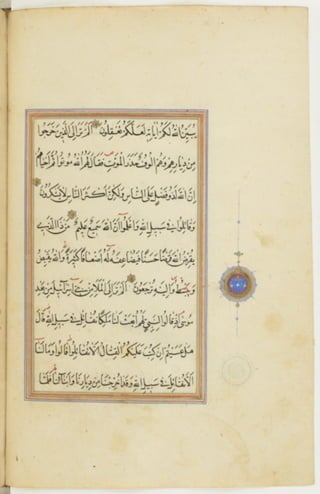 يبين الله لكم اياته لعلكم تعقلون الم تر الى الذين خرجوا
من ديارهم وهم الوف حذر الموت فقال لهم الله موتوا ثم احياهم
ان الله لذو فضل على الناس ولكن اكثر الناس لا يشكرون
وقاتلوا في سبيل الله واعلموا ان الله سميع عليم من ذا الذي
يقرض الله قرضا حسنا فيضاعفه له اضعافا كثيرة والله يقبض
ويبسط واليه ترجعون الم تر الى الملا من بني اسرائيل من بعد
موسى اذ قالوا لنبي لهم ابعث لنا ملكا نقاتل في سبيل الله قال
هل عسيتم ان كتب عليكم القتال الا تقاتلوا قالوا وما لنا
الا نقاتل في سبيل الله وقد اخرجنا من ديارنا وابنائنا فلما